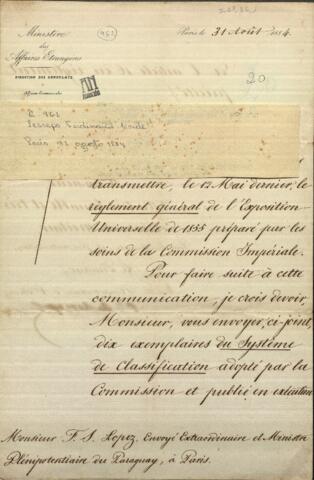 Ministère
des
Affaires Etrangères
DIRECTION DES CONSULATS
Paris, le 31 Août 1854.
961
20
transmettre, le 12 Mai dernier, le
règlement général de l'Exposition
Universelle de 1855 préparé par les
soins de la Commission Impériale.
Pour faire suite à cette
communication, je crois devoir,
Monsieur, vous envoyer, ci-joint,
dix exemplaires du Système
de Classification adopté par la
Commission et publié en exécution
Monsieur F. S. Lopez, Envoyé Extraordinaire et Ministre
Plénipotentiaire du Paraguay, à Paris.